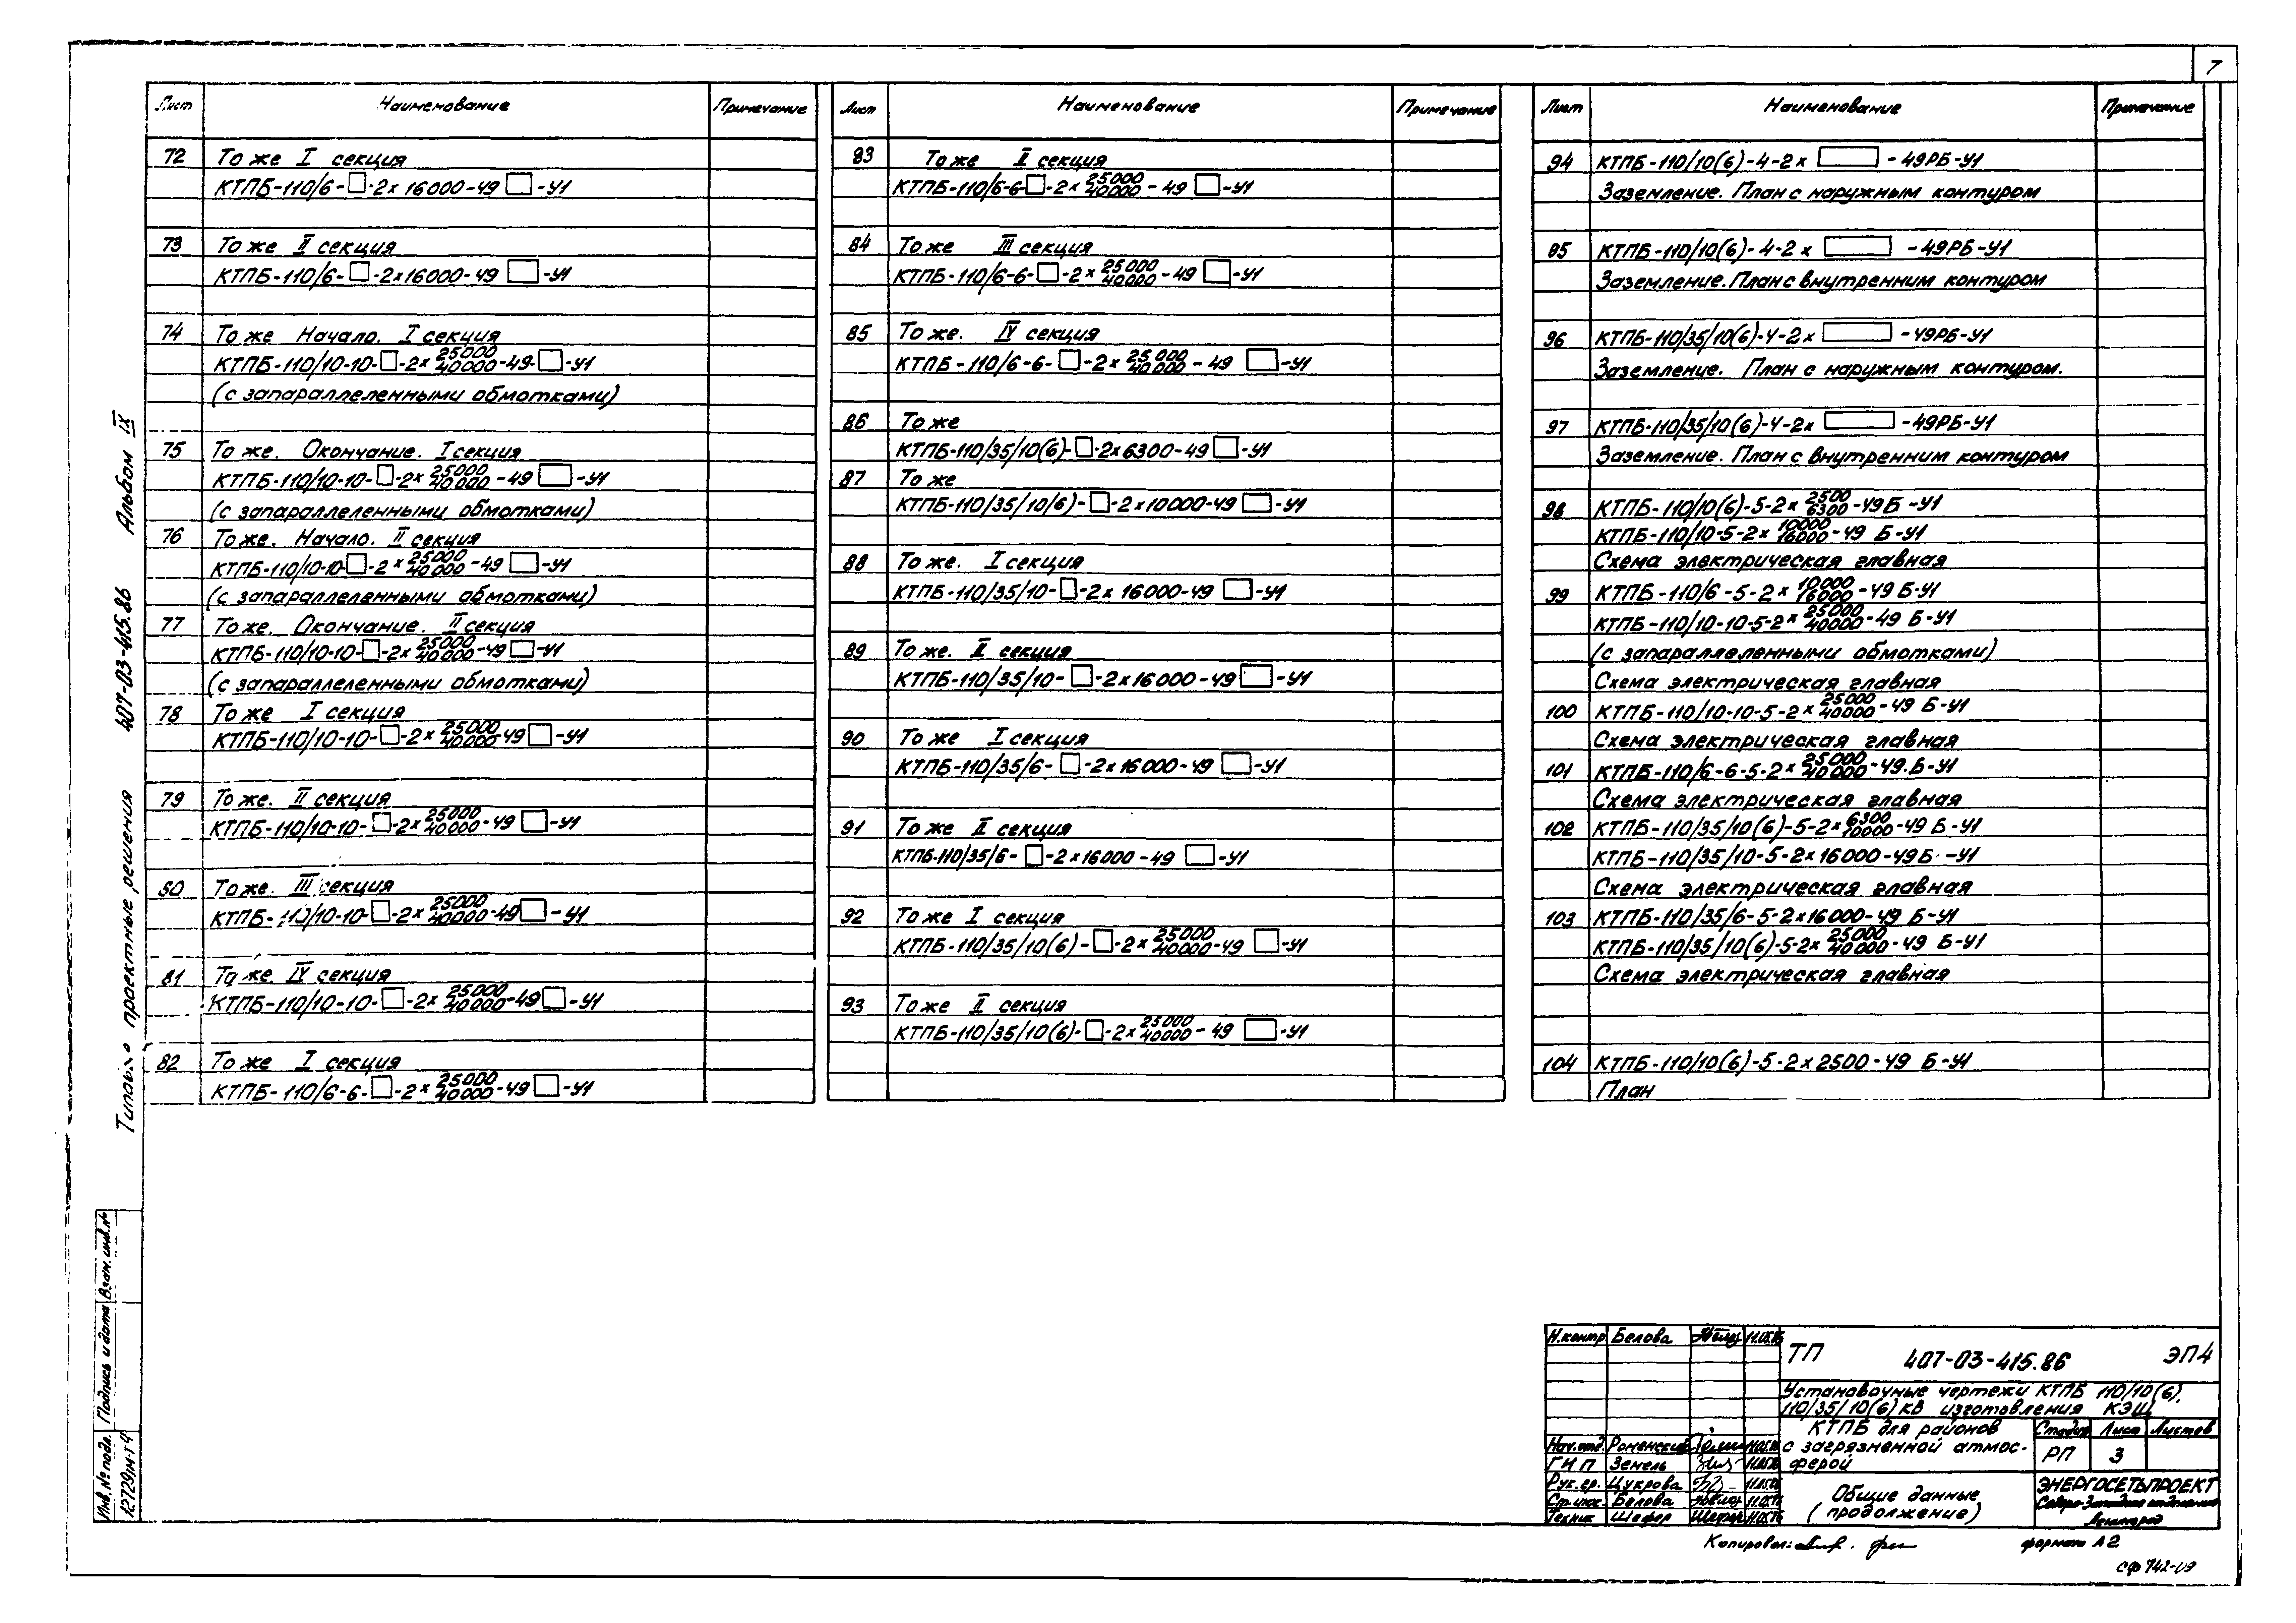 7
Лист Наименование Примечание
72 То же I секция
КТПБ-110/6-□-2х16000-49□-У1
73 То же II секция
КТПБ-110/6-□-2х16000-49□-У1
74 То же Начало. I секция
КТПБ-110/10-10-□-2х25000/40000-49-□-У1
(с запараллеленными обмотками)
75 То же. Окончание. I секция
КТПБ-110/10-10-□-2х25000/40000-49□-У1
(с запараллеленными обмотками)
76 То же. Начало. II секция
КТПБ-110/10-10-□-2х25000/40000-49□-У1
(с запараллеленными обмотками)
77 То же. Окончание. II секция
КТПБ-110/10-10-□-2х25000/40000-49□-У1
(с запараллеленными обмотками)
78 То же I секция
КТПБ-110/10-10-□-2х25000/40000-49□-У1
79 То же. II секция
КТПБ-110/10-10-□-2х25000/40000-49□-У1
80 То же. III секция
КТПБ-110/10-10-□-2х25000/40000-49□-У1
81 То же. IV секция
КТПБ-110/10-10-□-2х25000/40000-49□-У1
82 То же I секция
КТПБ-110/6-6-□-2х25000/40000-49□-У1
Лист Наименование Примечание
83 То же II секция
КТПБ-110/6-6-□-2х25000/40000-49□-У1
84 То же III секция
КТПБ-110/6-6-□-2х25000/40000-49□-У1
85 То же. IV секция
КТПБ-110/6-6-□-2х25000/40000-49□-У1
86 То же
КТПБ-110/35/10(6)-□-2х6300-49□-У1
87 То же
КТПБ-110/35/10/6)-□-2х10000-49□-У1
88 То же. I секция
КТПБ-110/35/10-□-2х16000-49□-У1
89 То же. II секция
КТПБ-110/35/10-□-2х16000-49□-У1
90 То же I секция
КТПБ-110/35/6-□-2х16000-49□-У1
91 То же II секция
КТПБ-110/35/6-□-2х16000-49□-У1
92 То же I секция
КТПБ-110/35/10(6)-□-2х25000/40000-49□-У1
93 То же II секция
КТПБ-110/35/10(6)-□-2х25000/40000-49□-У1
Лист Наименование Примечание
94 КТПБ-110/10(6)-4-2х□-49РБ-У1
Заземление. План с наружным контуром
85 КТПБ-110/10(6)-4-2х□-49РБ-У1
Заземление. План с внутренним контуром
96 КТПБ-110/35/10(6)-4-2х□-49РБ-У1
Заземление. План с наружным контуром.
97 КТПБ-110/35/10(6)-4-2х□-49РБ-У1
Заземление. План с внутренним контуром
98 КТПБ-110/10(6)-5-2х2500/6300-49Б-У1
КТПБ-110/10-5-2х10000/16000-49 Б-У1
Схема электрическая главная
99 КТПБ-110/6-5-2х10000/16000-49 Б-У1
КТПБ-110/10-10-5-2х25000/40000-49 Б-У1
(с запараллеленными обмотками)
Схема электрическая главная
100 КТПБ-110/10-10-5-2х25000/40000-49 Б-У1
Схема электрическая главная
101 КТПБ-110/6-6-5-2х25000/40000-49.Б-У1
Схема электрическая главная
102 КТПБ-110/35/10(6)-5-2х6300/10000-49 Б-У1
КТПБ-110/35/10-5-2х16000-49Б-У1
Схема электрическая главная
103 КТПБ-110/35/6-5-2х16000-49 Б-У1
КТПБ-110/35/10(6)-5-2х25000/40000-49 Б-У1
Схема электрическая главная
104 КТПБ-110/10(6)-5-2х2500-49 Б-У1
План
проектные решения 407-03-415.86 Альбом IX
Инв.№подл. Подпись и дата Взам. инв.№
12729тм-т4
Н.контр Белова
ТП 407-03-415.86 ЭП4
Установочные чертежи КТПБ 110/10(6),
110/35/10(6) кВ изготовления КЭЩ
КТПБ для районов
с загрязненной атмос-
ферой
Стадия Лист Листов
РП 3
Нач.отд. Роменский
ГИП Земель
Рук.гр. Цукрова
Ст.инж. Белова
Техник Шефер
Общие данные
(продолжение)
ЭНЕРГОСЕТЬПРОЕКТ
Северо-Западное отделение
Ленинград
Копировал:
формат А2
сф 742-09